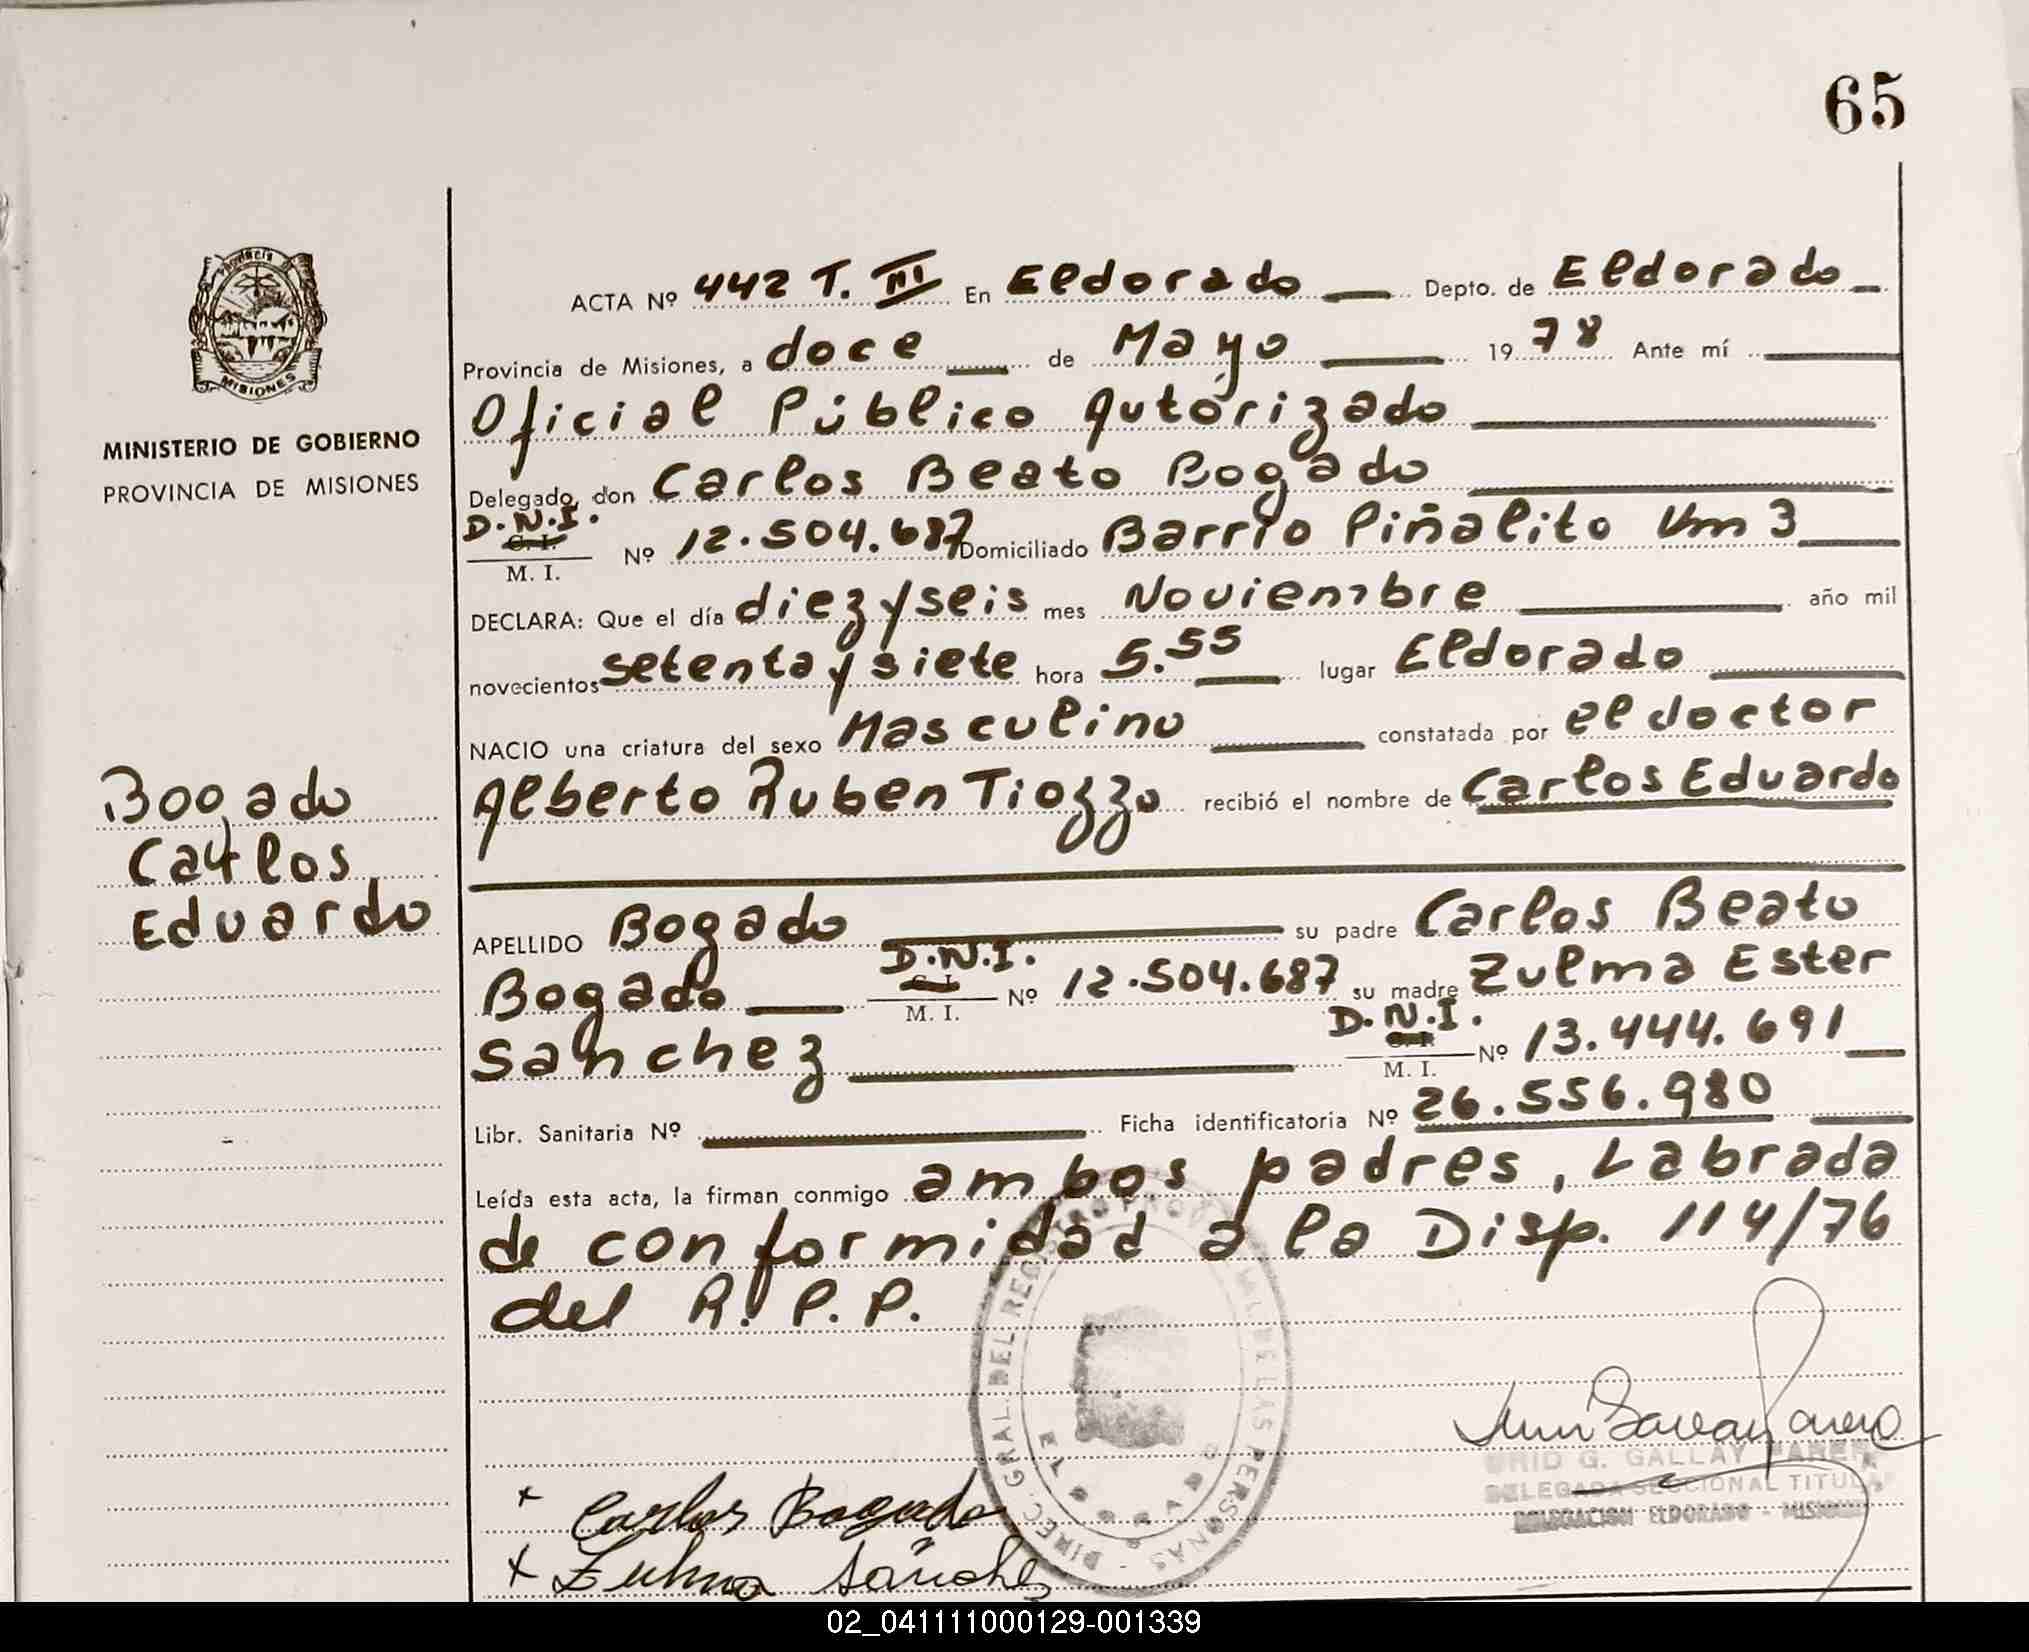 65
ACTA Nº 442 T. III En Eldorado Depto. de Eldorado
Provincia de Misiones, a doce de Mayo 1978 Ante mí
Oficial Público Autorizado
Delegado, don Carlos Beato Bogado
D.N.I.
C. I.
M. I.
Nº 12.504.687 Domiciliado Barrio Piñalito Km 3
DECLARA: Que el día diez y seis mes Noviembre año mil
novecientos setenta y siete hora 5.55 lugar Eldorado
NACIO una criatura del sexo Masculino constatada por el doctor
Alberto Ruben Tiozzo recibió el nombre de Carlos Eduardo
APELLIDO Bogado su padre Carlos Beato
Bogado D.N.I. C. I. M. I. Nº 12.504.687 su madre Zulma Ester
Sanchez D.N.I. C. I. M. I. Nº 13.444.691
Libr. Sanitaria Nº Ficha identificatoria Nº 26.556.980
Leída esta acta, la firman conmigo ambos padres, Labrada
de conformidad a la Disp. 114/76
del R. P. P.
PROVINCIA DE MISIONES
MINISTERIO DE GOBIERNO
PROVINCIA DE MISIONES
Bogado
Carlos
Eduardo
DIREC. GRAL. DEL REGISTRO PROV. DE LAS PERSONAS
ELDORADO
G. GALLAY
DELEGADA SECCIONAL TITULAR
DELEGACION ELDORADO - MISIONES
x Carlos Bogado
x Zulma Sánchez
02_041111000129-001339